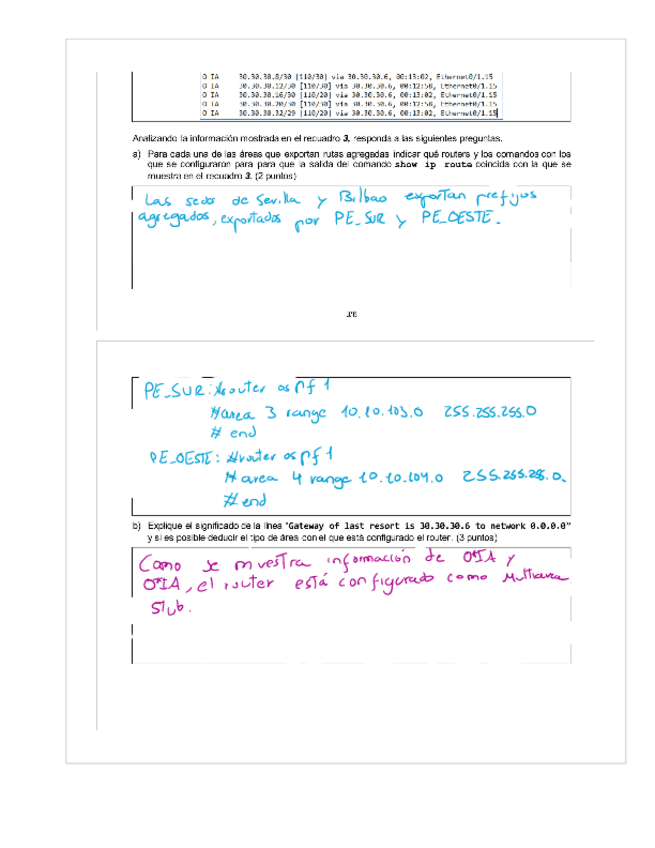 O IA 30.30.30.8/30 [110/30] via 30.30.30.6, 00:13:02, Ethernet0/1.15
O IA 30.30.30.12/30 [110/30] via 30.30.30.6, 00:12:58, Ethernet0/1.15
O IA 30.30.30.16/30 [110/20] via 30.30.30.6, 00:13:02, Ethernet0/1.15
O IA 30.30.30.20/30 [110/30] via 30.30.30.6, 00:12:58, Ethernet0/1.15
O IA 30.30.30.32/29 [110/20] via 30.30.30.6, 00:13:02, Ethernet0/1.15
Analizando la información mostrada en el recuadro 3, responda a las siguientes preguntas.
a) Para cada una de las áreas que exportan rutas agregadas indicar qué routers y los comandos con los
que se configuraron para para que la salida del comando show ip route coincida con la que se
muestra en el recuadro 3. (2 puntos)
Las sedes de Sevilla y Bilbao exportan prefijos
agregados, exportados por PE_SUR y PE_OESTE.
3/8
PE_SUR: #router ospf 1
#area 3 range 10.10.103.0 255.255.255.0
# end
PE_OESTE: #router ospf 1
# area 4 range 10.10.104.0 255.255.255.0.
# end
b) Explique el significado de la línea "Gateway of last resort is 30.30.30.6 to network 0.0.0.0"
y si es posible deducir el tipo de área con el que está configurado el router. (3 puntos)
Como se muestra información de O*IA y
O*IA, el router está configurado como Multiarea
Stub.